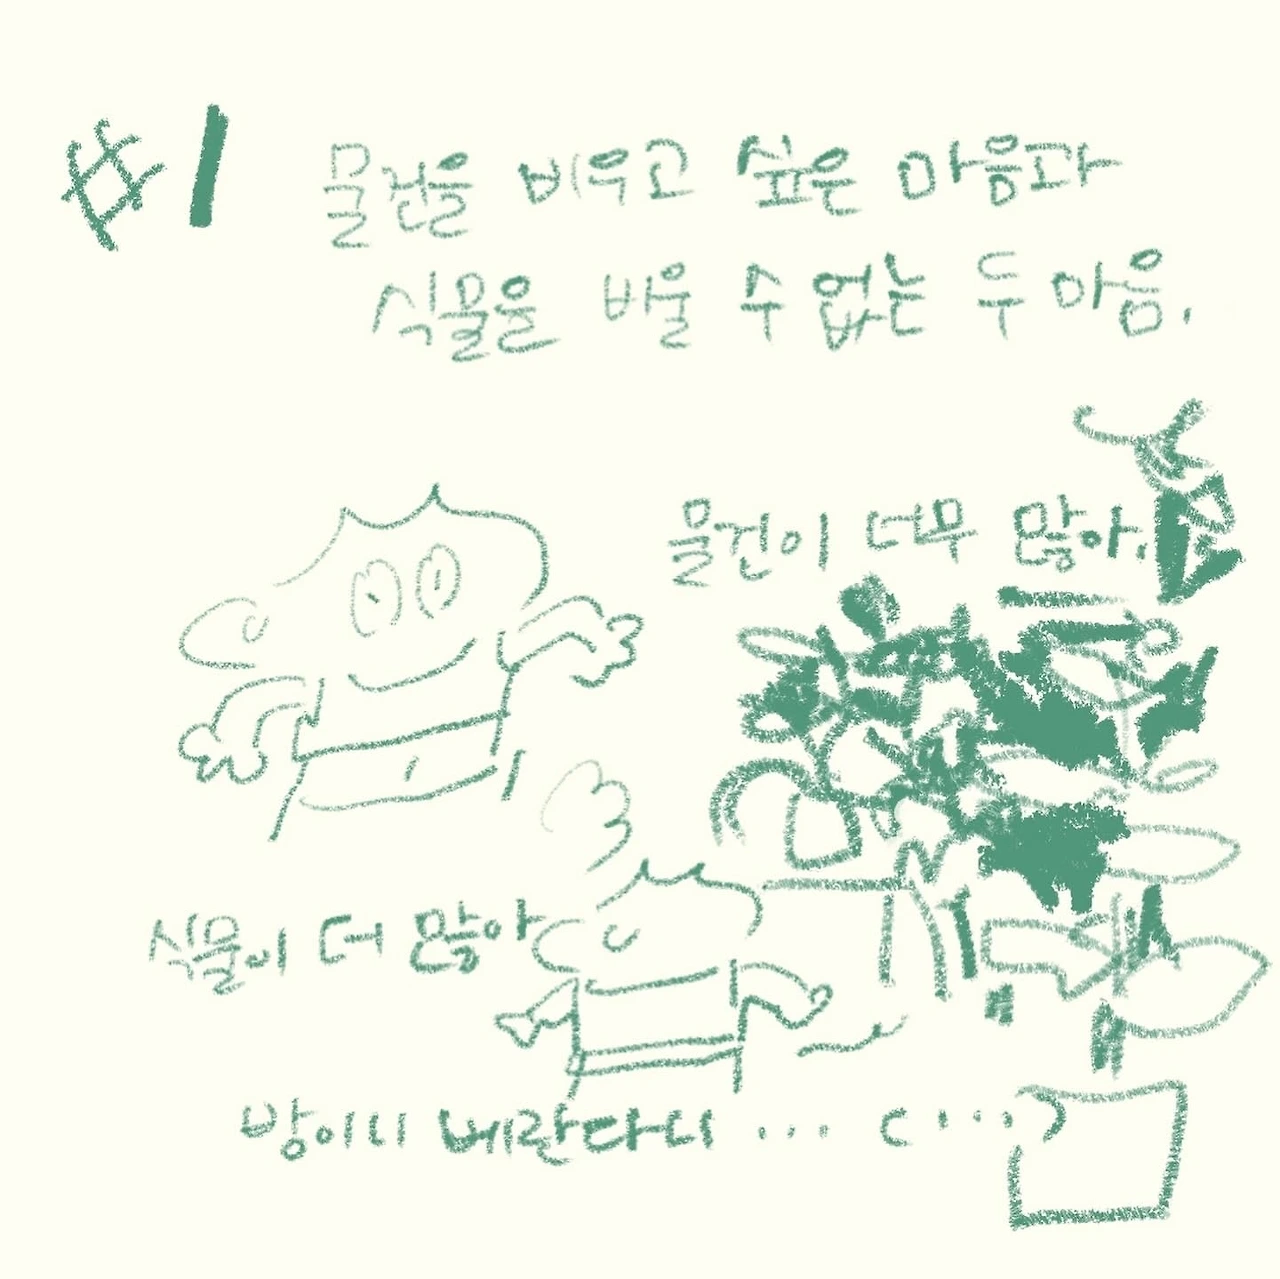 #1
물건을 비우고 싶은 마음과
식물을 비울 수 없는 두 마음.
물건이 너무 많아.
식물이 더 많아
방이니 베란다니... (...)